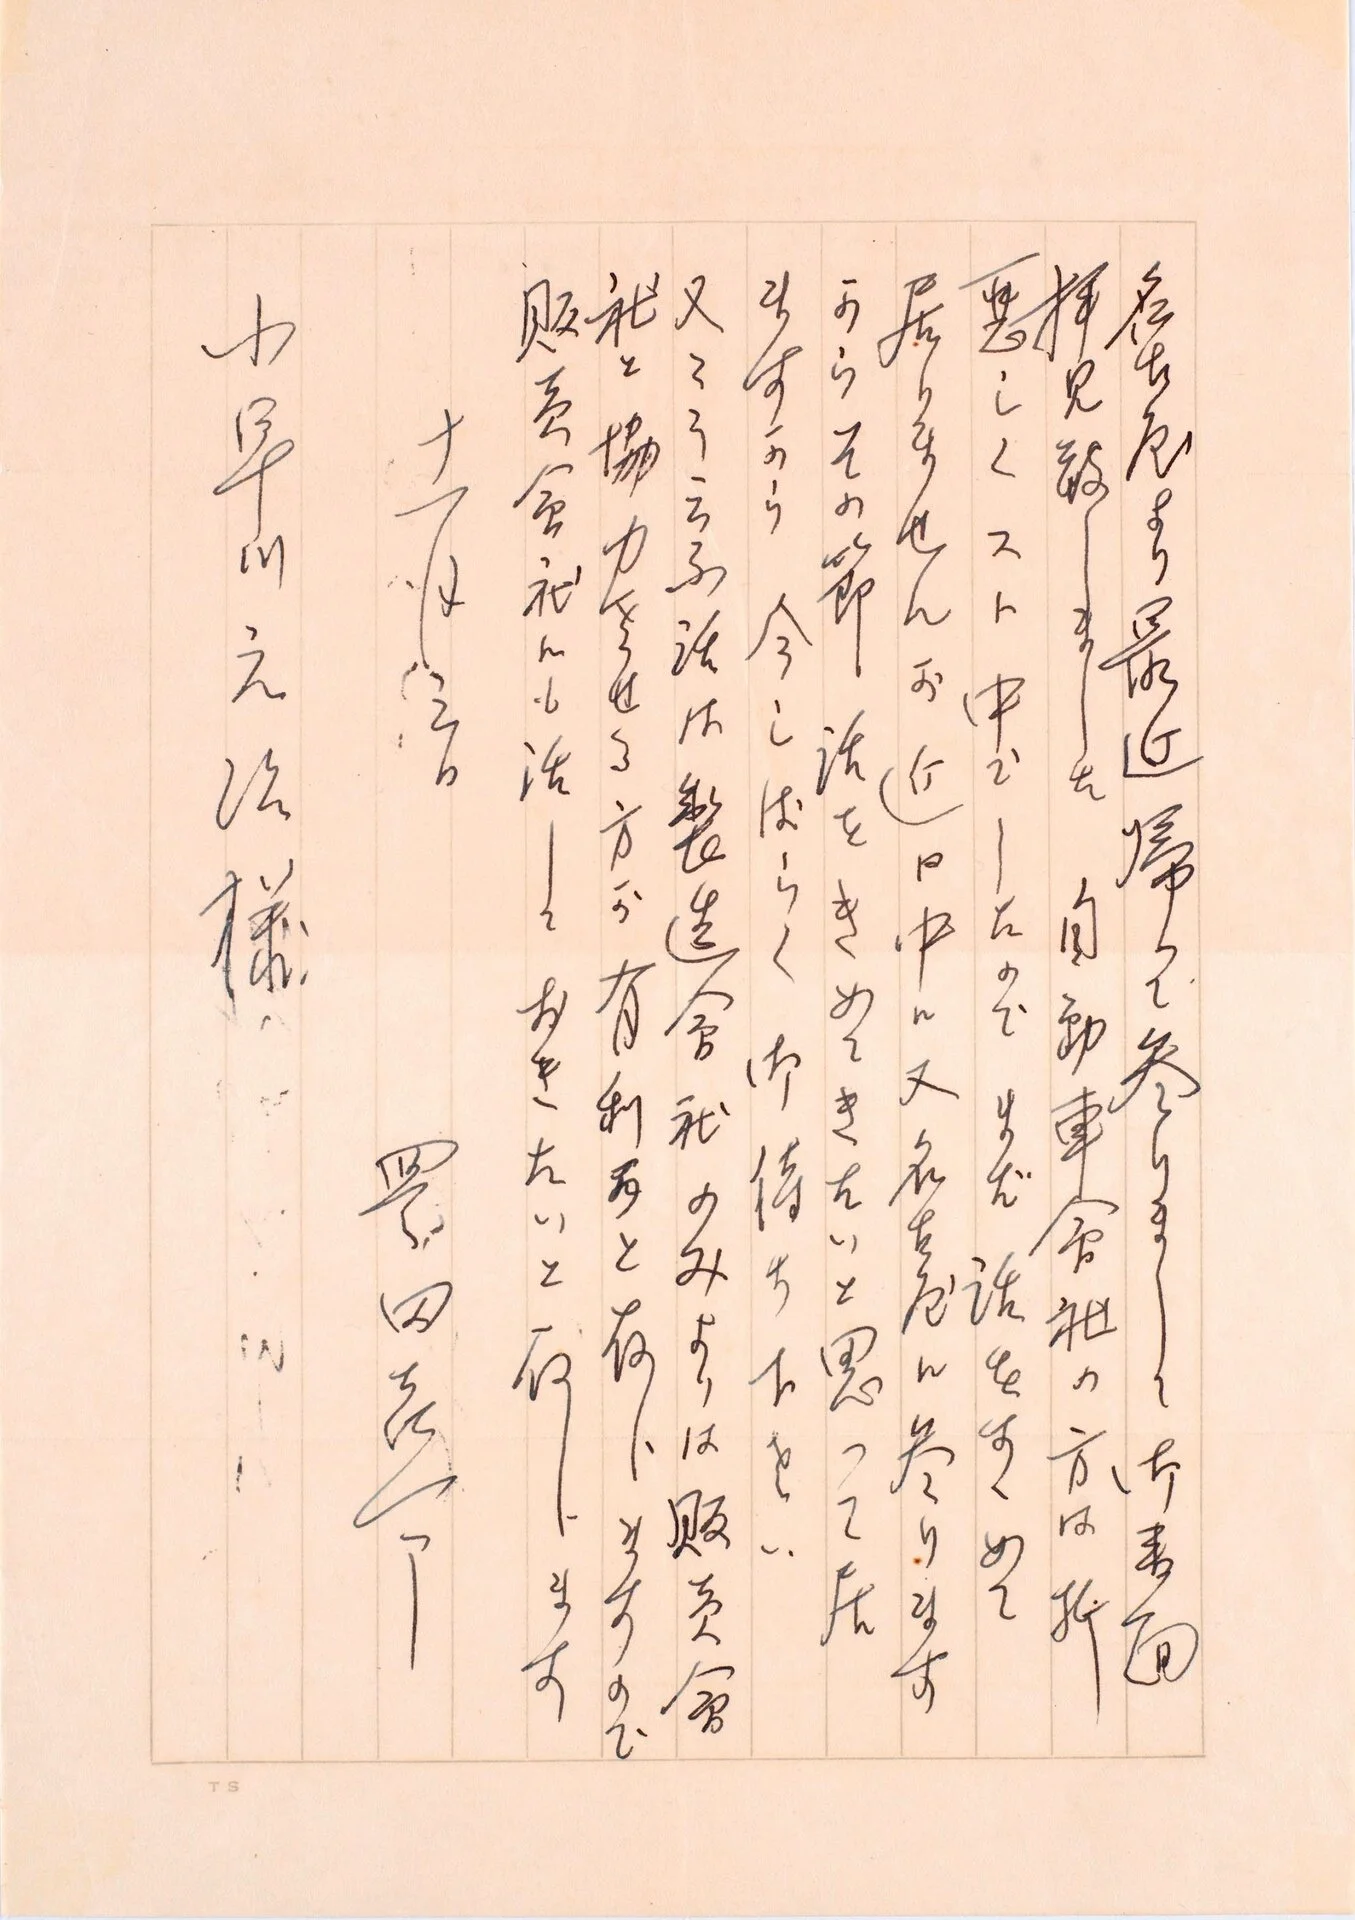 名古屋より最近帰って参りまして御書面
拝見致しました 自動車会社の方は折
悪しくスト中でしたので まだ話をすゝめて
居りませんが近日中に又名古屋に参ります
からその節 話をきめてきたいと思って居
ますから 今しばらく御待ち下さい
又こう云ふ話は製造会社のみよりは販売会
社と協力させる方が有利かと存じますので
販売会社にも話して おきたいと存じます
十一月
田喜一
小早川元治様
TS